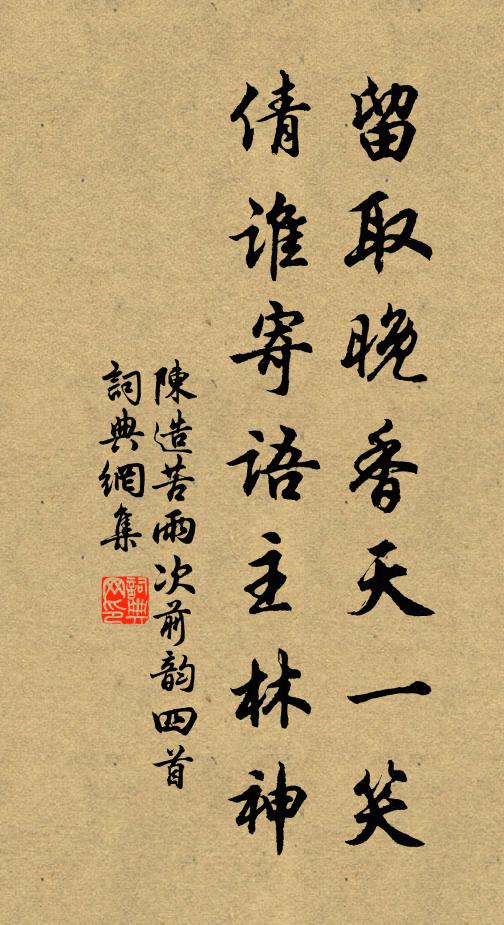 留取晚香天一笑
倩誰寄語主林神
陳造苦雨次前韵四首
詞典網集
詞典网印